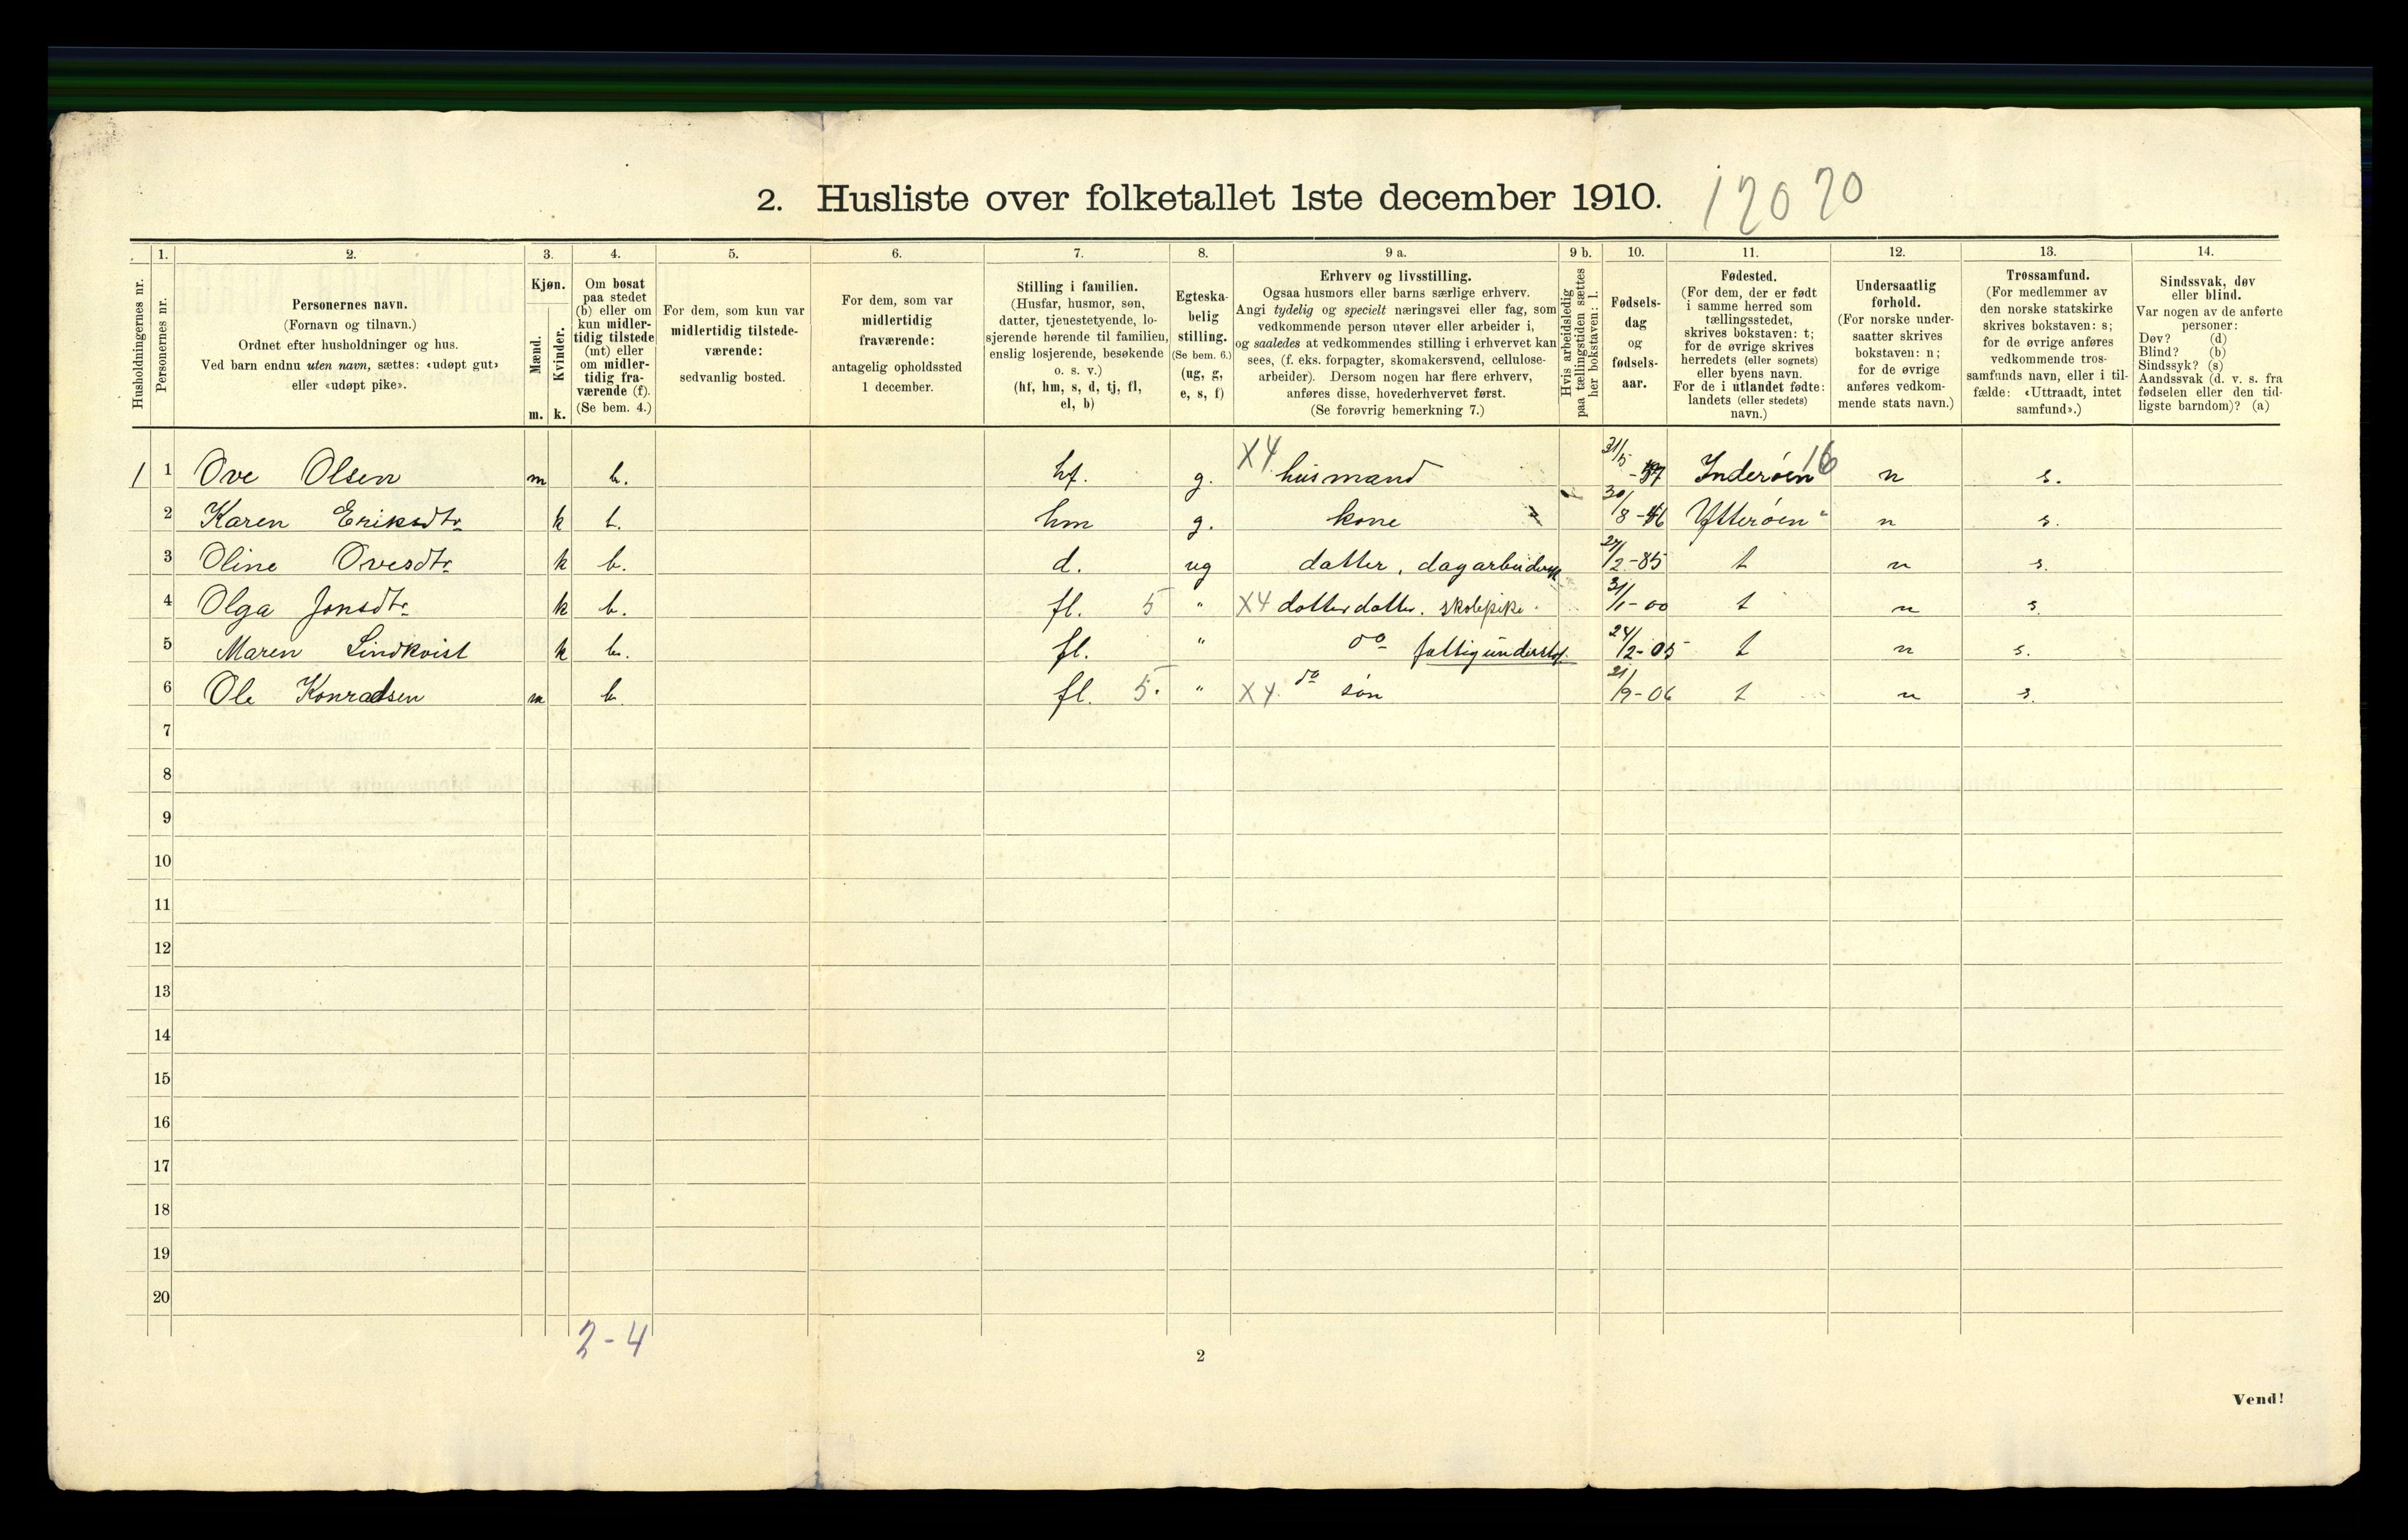 2. Husliste over folketallet 1ste december 1910. 12020
1. 2. 3. 4. 5. 6. 7. 8. 9 a. 9 b. 10. 11. 12. 13. 14.
Husholdningernes nr.
Personernes nr.
Personernes navn.
(Fornavn og tilnavn.)
Ordnet efter husholdninger og hus.
Ved barn endnu uten navn, sættes: «udøpt gut»
eller «udøpt pike».
Kjøn.
Mænd.
Kvinder.
m. k.
Om bosat
paa stedet
(b) eller om
kun midler-
tidig tilstede
(mt) eller
om midler-
tidig fra-
værende (f).
(Se bem. 4.)
For dem, som kun var
midlertidig tilstede-
værende:
sedvanlig bosted.
For dem, som var
midlertidig
fraværende:
antagelig opholdssted
1 december.
Stilling i familien.
(Husfar, husmor, søn,
datter, tjenestetyende, lo-
sjerende hørende til familien,
enslig losjerende, besøkende
o. s. v.)
(hf, hm, s, d, tj, fl,
el, b)
Egteska-
belig
stilling.
(Se bem. 6.)
(ug, g,
e, s, f)
Erhverv og livsstilling.
Ogsaa husmors eller barns særlige erhverv.
Angi tydelig og specielt næringsvei eller fag, som
vedkommende person utøver eller arbeider i,
og saaledes at vedkommendes stilling i erhvervet kan
sees, (f. eks. forpagter, skomakersvend, cellulose-
arbeider). Dersom nogen har flere erhverv,
anføres disse, hovederhvervet først.
(Se forøvrig bemerkning 7.)
Hvis arbeidsledig
paa tællingstiden sættes
her bokstaven: l.
Fødsels-
dag
og
fødsels-
aar.
Fødested.
(For dem, der er født
i samme herred som
tællingsstedet,
skrives bokstaven: t;
for de øvrige skrives
herredets (eller sognets)
eller byens navn.
For de i utlandet fødte:
landets (eller stedets)
navn.)
Undersaatlig
forhold.
(For norske under-
saatter skrives
bokstaven: n;
for de øvrige
anføres vedkom-
mende stats navn.)
Trossamfund.
(For medlemmer av
den norske statskirke
skrives bokstaven: s;
for de øvrige anføres
vedkommende tros-
samfunds navn, eller i til-
fælde: «Uttraadt, intet
samfund».)
Sindssvak, døv
eller blind.
Var nogen av de anførte
personer:
Døv? (d)
Blind? (b)
Sindssyk? (s)
Aandssvak (d. v. s. fra
fødselen eller den tid-
ligste barndom)? (a)
1 1 Ove Olsen m b. hf. g. X4 husmand 31/5 Inderøen 16 n s.
2 Karen Eriksdtr k b. hm g. kone 30/8 Ytterøen " n s.
3 Oline Ovesdtr k b. d. ug datter, dagarbeiderske 27/2-85 t n s.
4 Olga Jonsdtr k b. fl. 5 " X4 datterdatter. skolepike 31/1-00 t n s.
5 Maren Lindkvist k b. fl. " do fattigunderst. 24/2-05 t n s.
6 Ole Konradsen m b. fl. 5. " X4. do søn 21/9-06 t n s.
7
8
9
10
11
12
13
14
15
16
17
18
19
20
2-4
2
Vend!